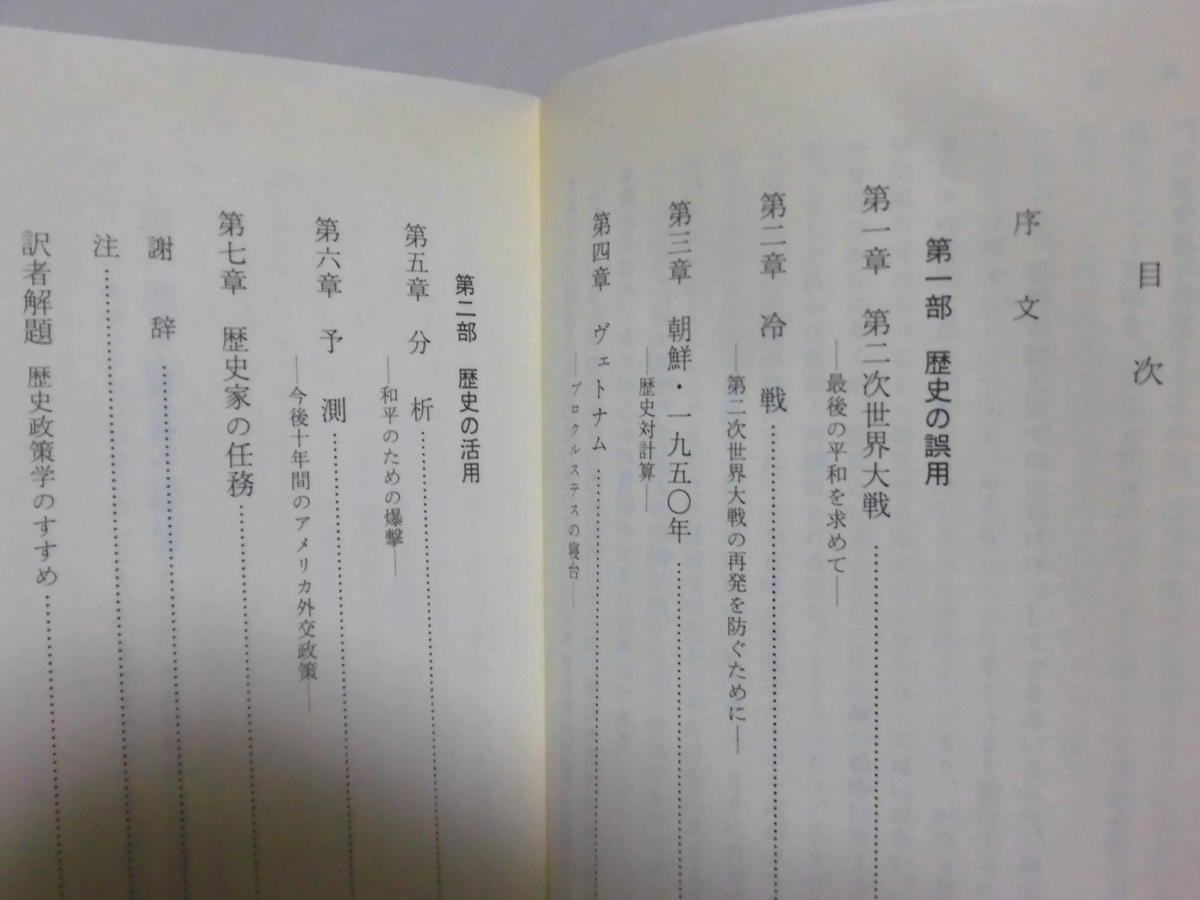 目次
序文
第一部 歴史の誤用
第一章 第二次世界大戦
―最後の平和を求めて―
第二章 冷戦
―第二次世界大戦の再発を防ぐために―
第三章 朝鮮・一九五〇年
―歴史対計算―
第四章 ヴェトナム
―プロクルステスの寝台―
第二部 歴史の活用
第五章 分析
―和平のための爆撃―
第六章 予測
―今後十年間のアメリカ外交政策―
第七章 歴史家の任務
謝辞
注
訳者解題 歴史政策学のすすめ